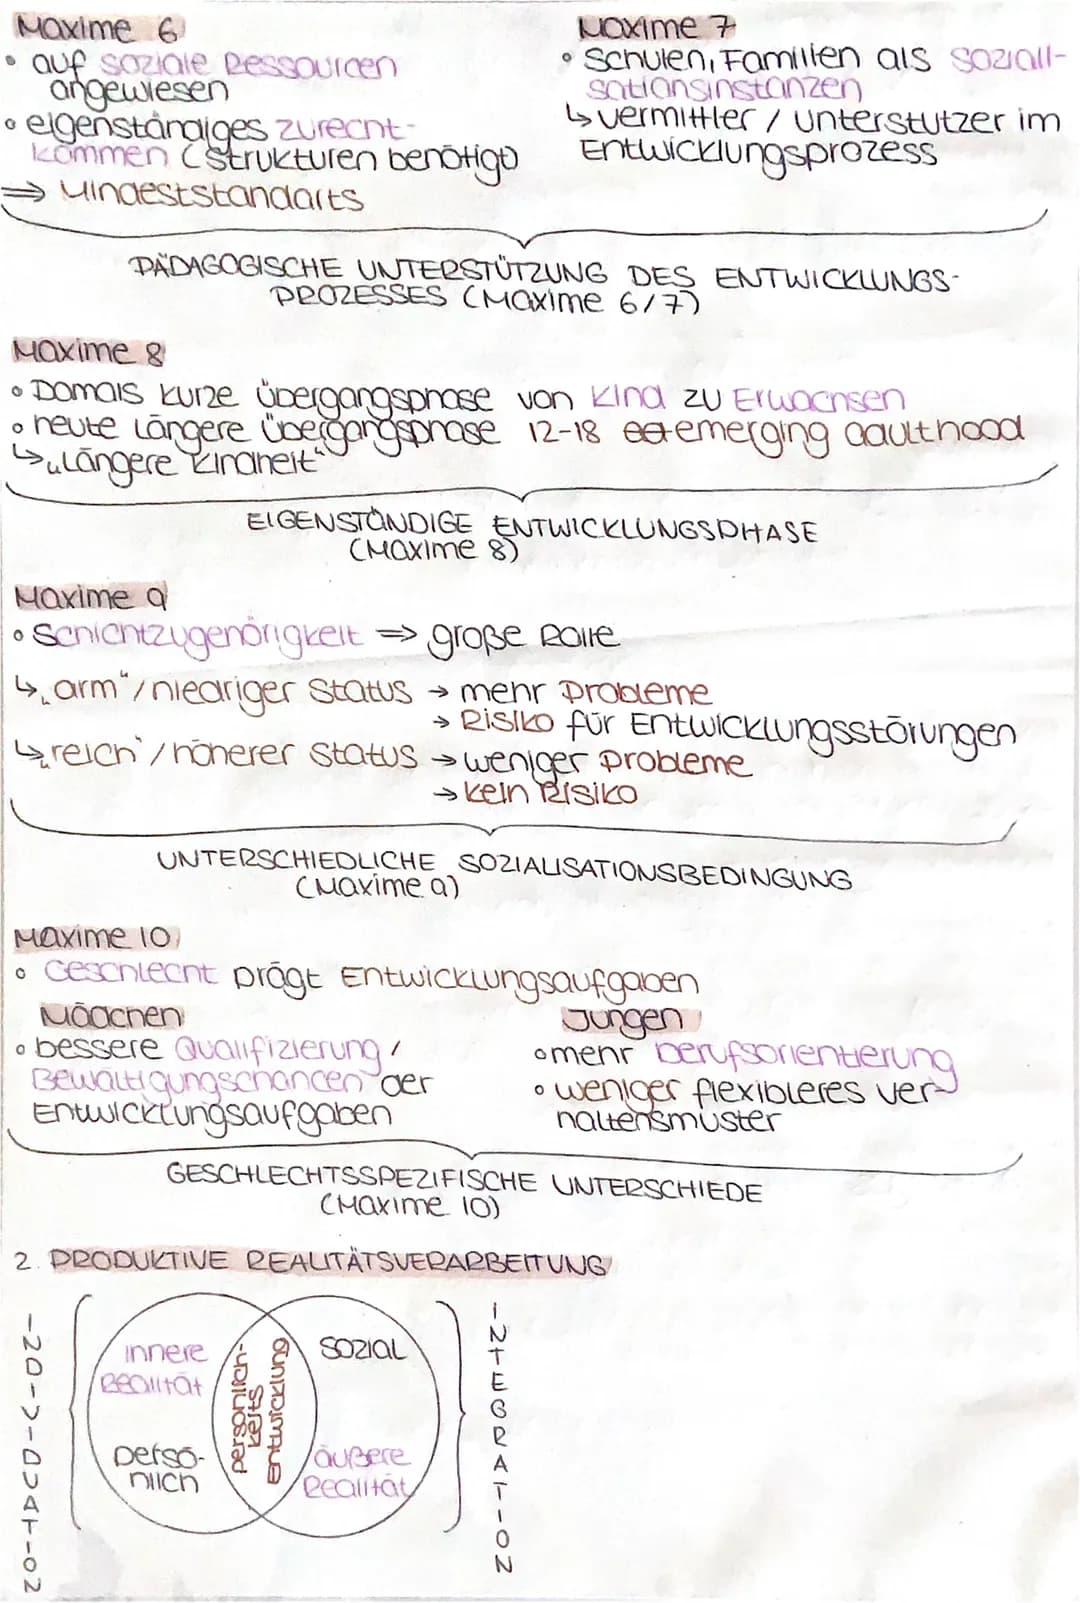 Maxime 6
• auf soziale Ressourcen
angewiesen
• eigenständiges zurecht-
kommen (Strukturen benötigt)
⇒ Mindeststandarts
Maxime 7
• Schulen, Familien als Soziali-
sationsinstanzen
↳ vermittler / unterstützer im
Entwicklungsprozess
PÄDAGOGISCHE UNTERSTÜTZUNG DES ENTWICKLUNGS-
PROZESSES (Maxime 6/7)
Maxime 8
• Damals kurze Übergangsphase von Kind zu Erwachsen
• heute längere Übergangsphase 12-18 emerging adulthood
↳ „Längere Kindheit“
EIGENSTÄNDIGE ENTWICKLUNGSPHASE
(Maxime 8)
Maxime 9
• Schichtzugehörigkeit ⇒ große Rolle
↳ „arm“/niedriger Status → mehr Probleme
→ Risiko für Entwicklungsstörungen
↳ „reich“/höherer Status → weniger Probleme
→ kein Risiko
UNTERSCHIEDLICHE SOZIALISATIONSBEDINGUNG
(Maxime 9)
Maxime 10
• Geschlecht prägt Entwicklungsaufgaben
Mädchen
• bessere Qualifizierung /
Bewältigungschancen der
Entwicklungsaufgaben
Jungen
• mehr Berufsorientierung
• weniger flexibleres ver-
haltensmuster
GESCHLECHTSSPEZIFISCHE UNTERSCHIEDE
(Maxime 10)
2. PRODUKTIVE REALITÄTSVERARBEITUNG
INDIVIDUATION
innere
Realität
persö-
nlich
persönlich-
keits
entwicklung
SOZIAL
äußere
Realität
INTEGRATION